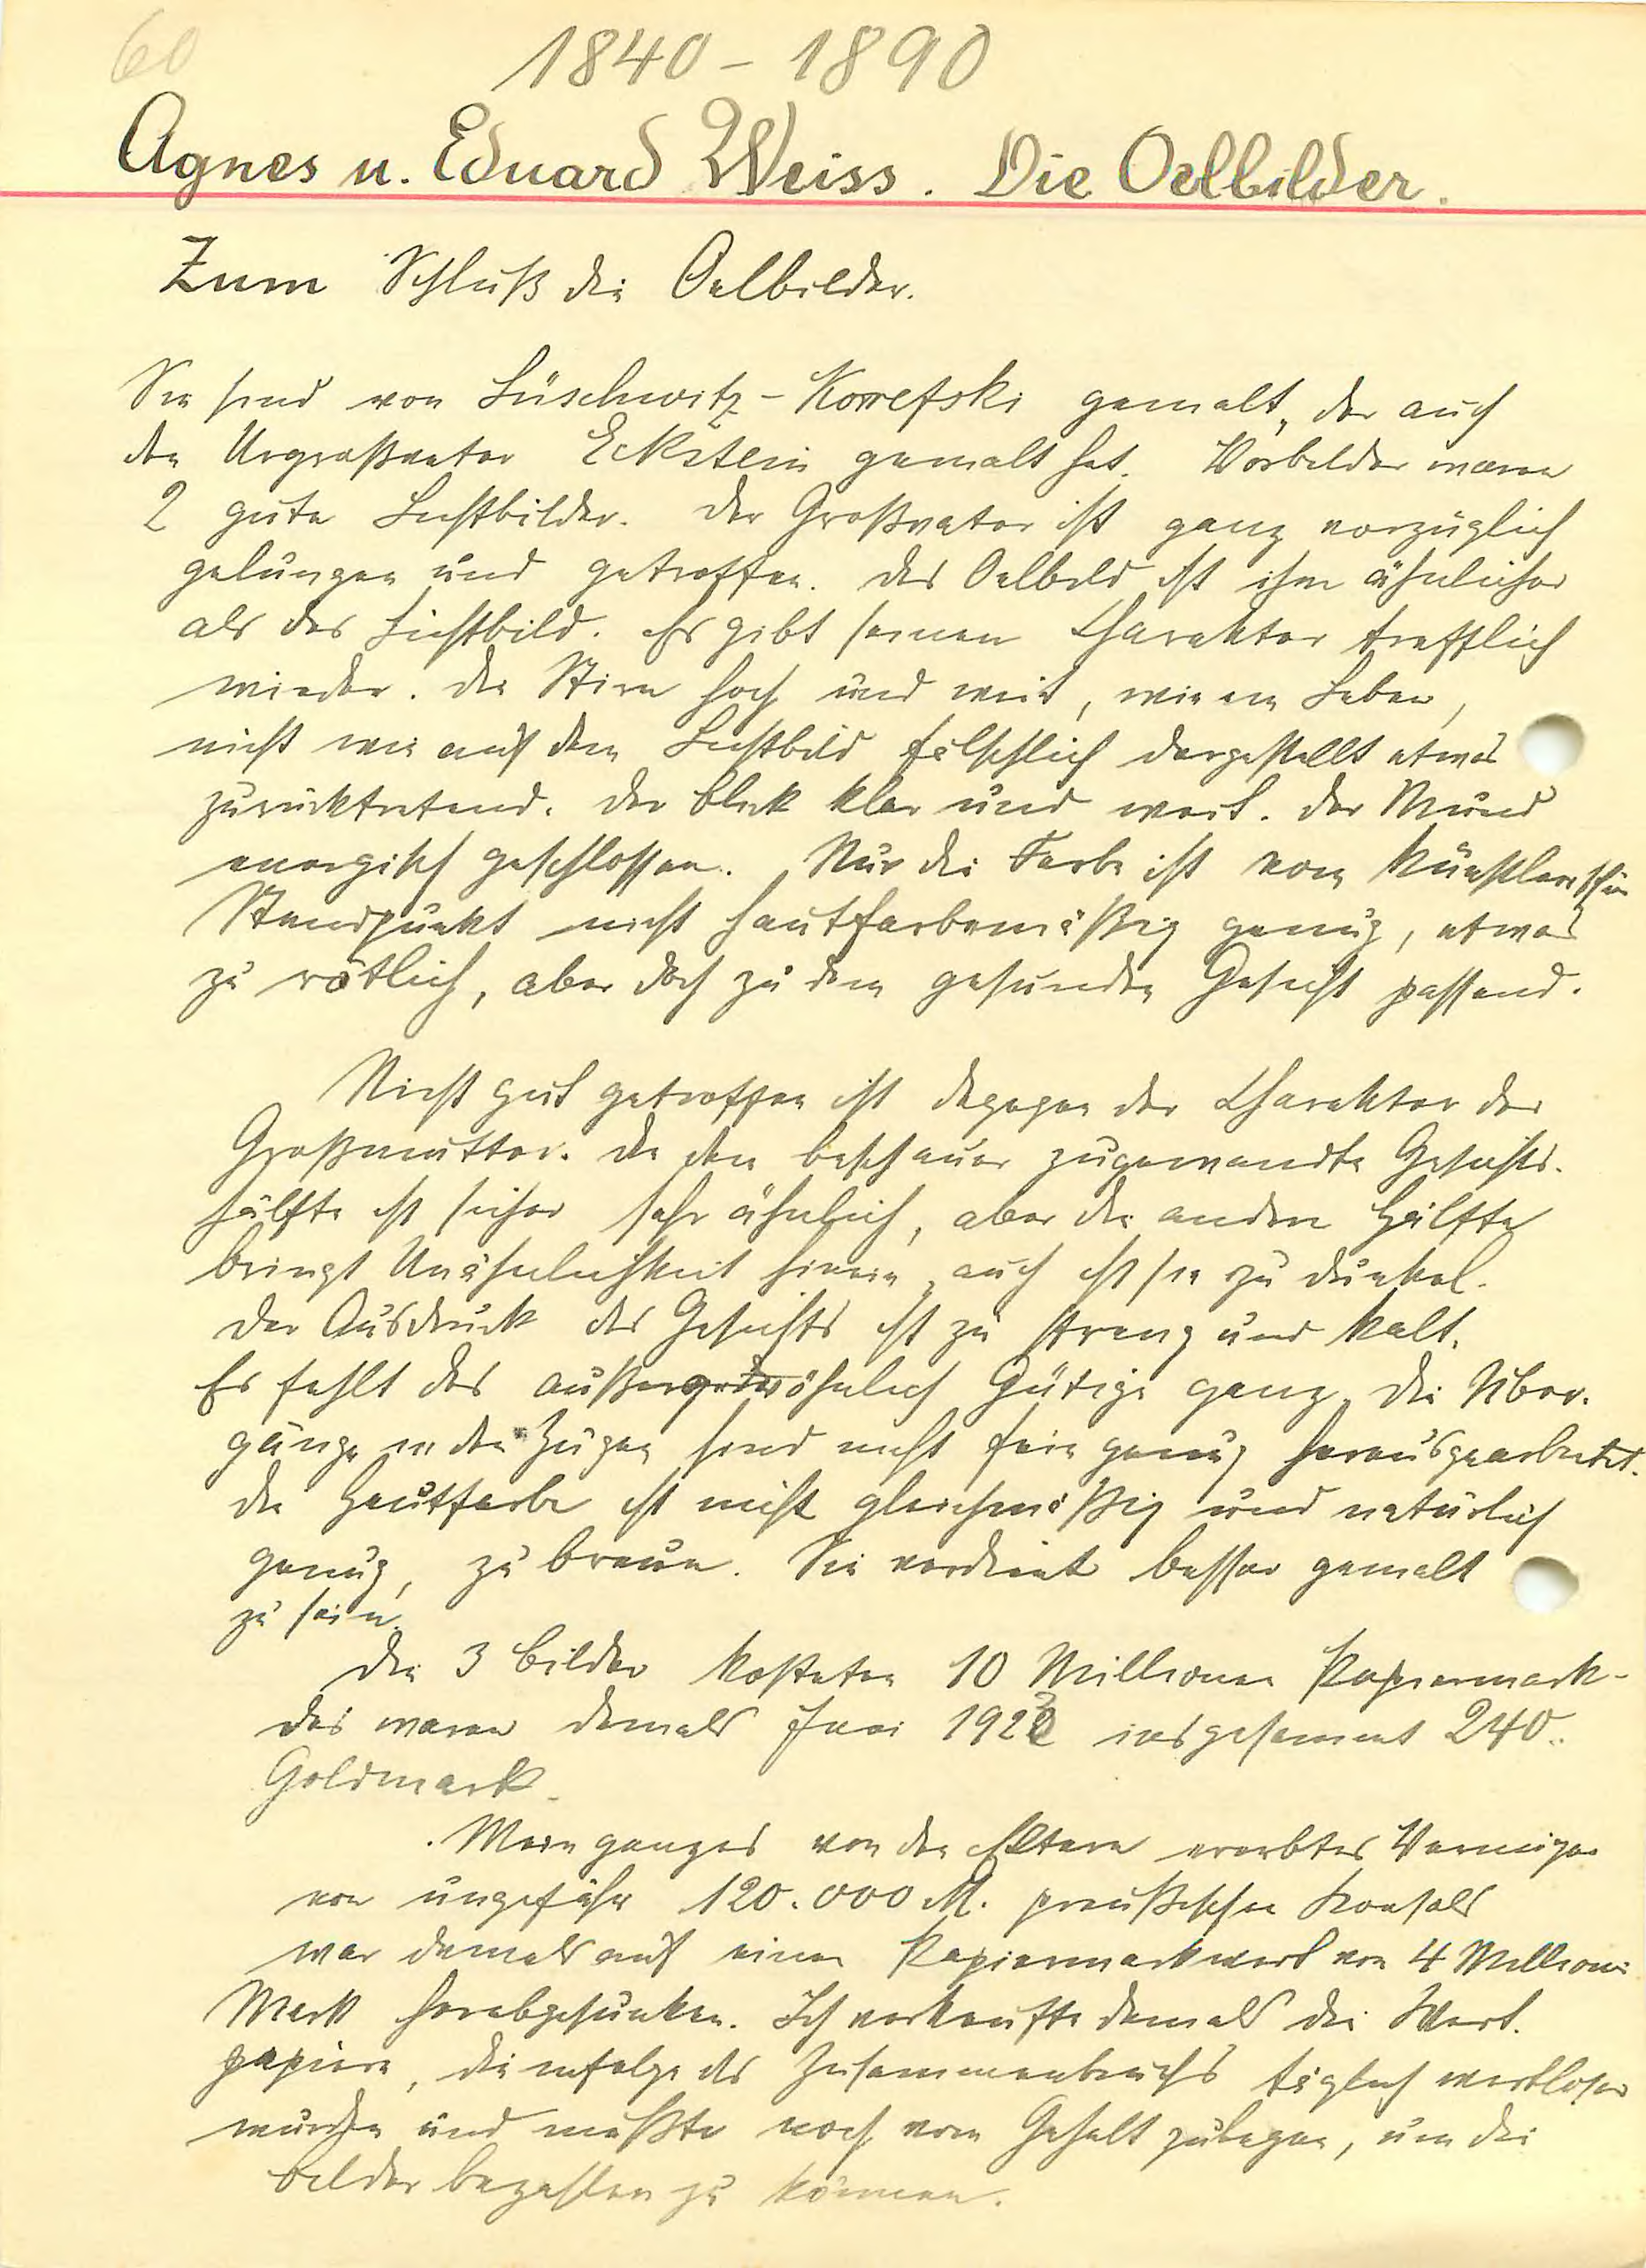 60
1840 - 1890
Agnes u. Eduard Weiss. Die Oelbilder.
Zum Schluß die Oelbilder.
Sie sind von Lüschwitz - Korrefski gemalt, der auch
den Urgroßvater Eckstein gemalt hat. Vorbilder waren
2 gute Lichtbilder. Der Großvater ist ganz vorzüglich
gelungen und getroffen. Das Oelbild ist ihm ähnlicher
als das Lichtbild. Es gibt seinen Charakter trefflich
wieder. Die Stirn hoch und weit, wie im Leben,
nicht wie auf dem Lichtbild fälschlich dargestellt etwas
zurücktretend. Der Blick klar und weit. Der Mund
energisch geschlossen. Nur die Farbe ist vom künstlerischen
Standpunkt nicht hautfarbemäßig genug, etwas
zu rötlich, aber doch zu dem gesunden Gesicht passend.
Nicht gut getroffen ist dagegen der Charakter der
Großmutter. Die dem Beschauer zugewandte Gesichts-
hälfte ist sicher sehr ähnlich, aber die andere Hälfte
bringt Unähnlichkeit hinein, auch ist sie zu dunkel.
Der Ausdruck des Gesichts ist zu streng und kalt.
Es fehlt das außergewöhnlich Gütige ganz. Die Über-
gänge in den Zügen sind nicht fein genug herausgearbeitet.
Die Hautfarbe ist nicht gleichmäßig und natürlich
genug, zu braun. Sie verdient besser gemalt
zu sein.
Die 3 Bilder kosteten 10 Millionen Papiermark-
das waren damals Juni 1923 insgesamt 240.
Goldmark.
Mein ganzes von den Eltern ererbtes Vermögen
von ungefähr 120.000 M. preußischen Konsols
war damals auf einen Papiermarkwert von 4 Millionen
Mark herabgesunken. Ich verkaufte damals die Wert-
papiere, die infolge des Zusammenbruchs täglich wertloser
wurden und mußte noch vom Gehalt zulegen, um die
Bilder bezahlen zu können.